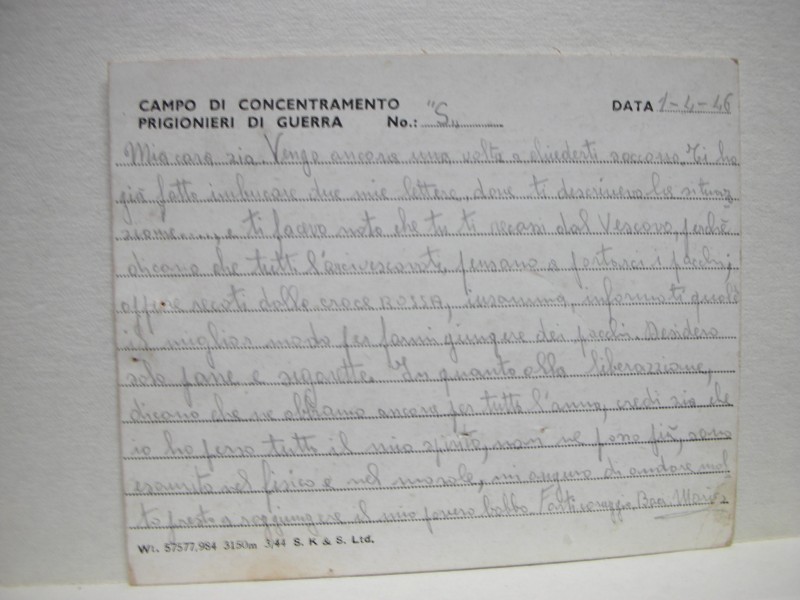 CAMPO DI CONCENTRAMENTO
PRIGIONIERI DI GUERRA No.: "S" DATA 1-4-46
Mia cara zia. Vengo ancora una volta a chiederti soccorso. Ti ho
già fatto imbucare due mie lettere, dove ti descrivevo la situa
zione....., e ti facevo noto che tu ti recassi dal Vescovo, perchè
dicano che tutti l'arcivescovati pensano a portarci i pacchi,
oppure recati dalla croce ROSSA, insomma, informati quale
il miglior modo per farmi giungere dei pacchi. Desidero
solo pane e sigarette. In quanto alla liberazzione,
dicano che ne abbiamo ancora per tutto l'anno, credi zia che
io ho perso tutto il mio spirito, non ne posso più, sono
esaurito nel fisico e nel morale, mi auguro di andare mol
to presto a raggiungere il mio povero babbo Fatti coraggio. Baci Mario
Wt. 57577,984 3150m 3/44 S. K & S. Ltd.